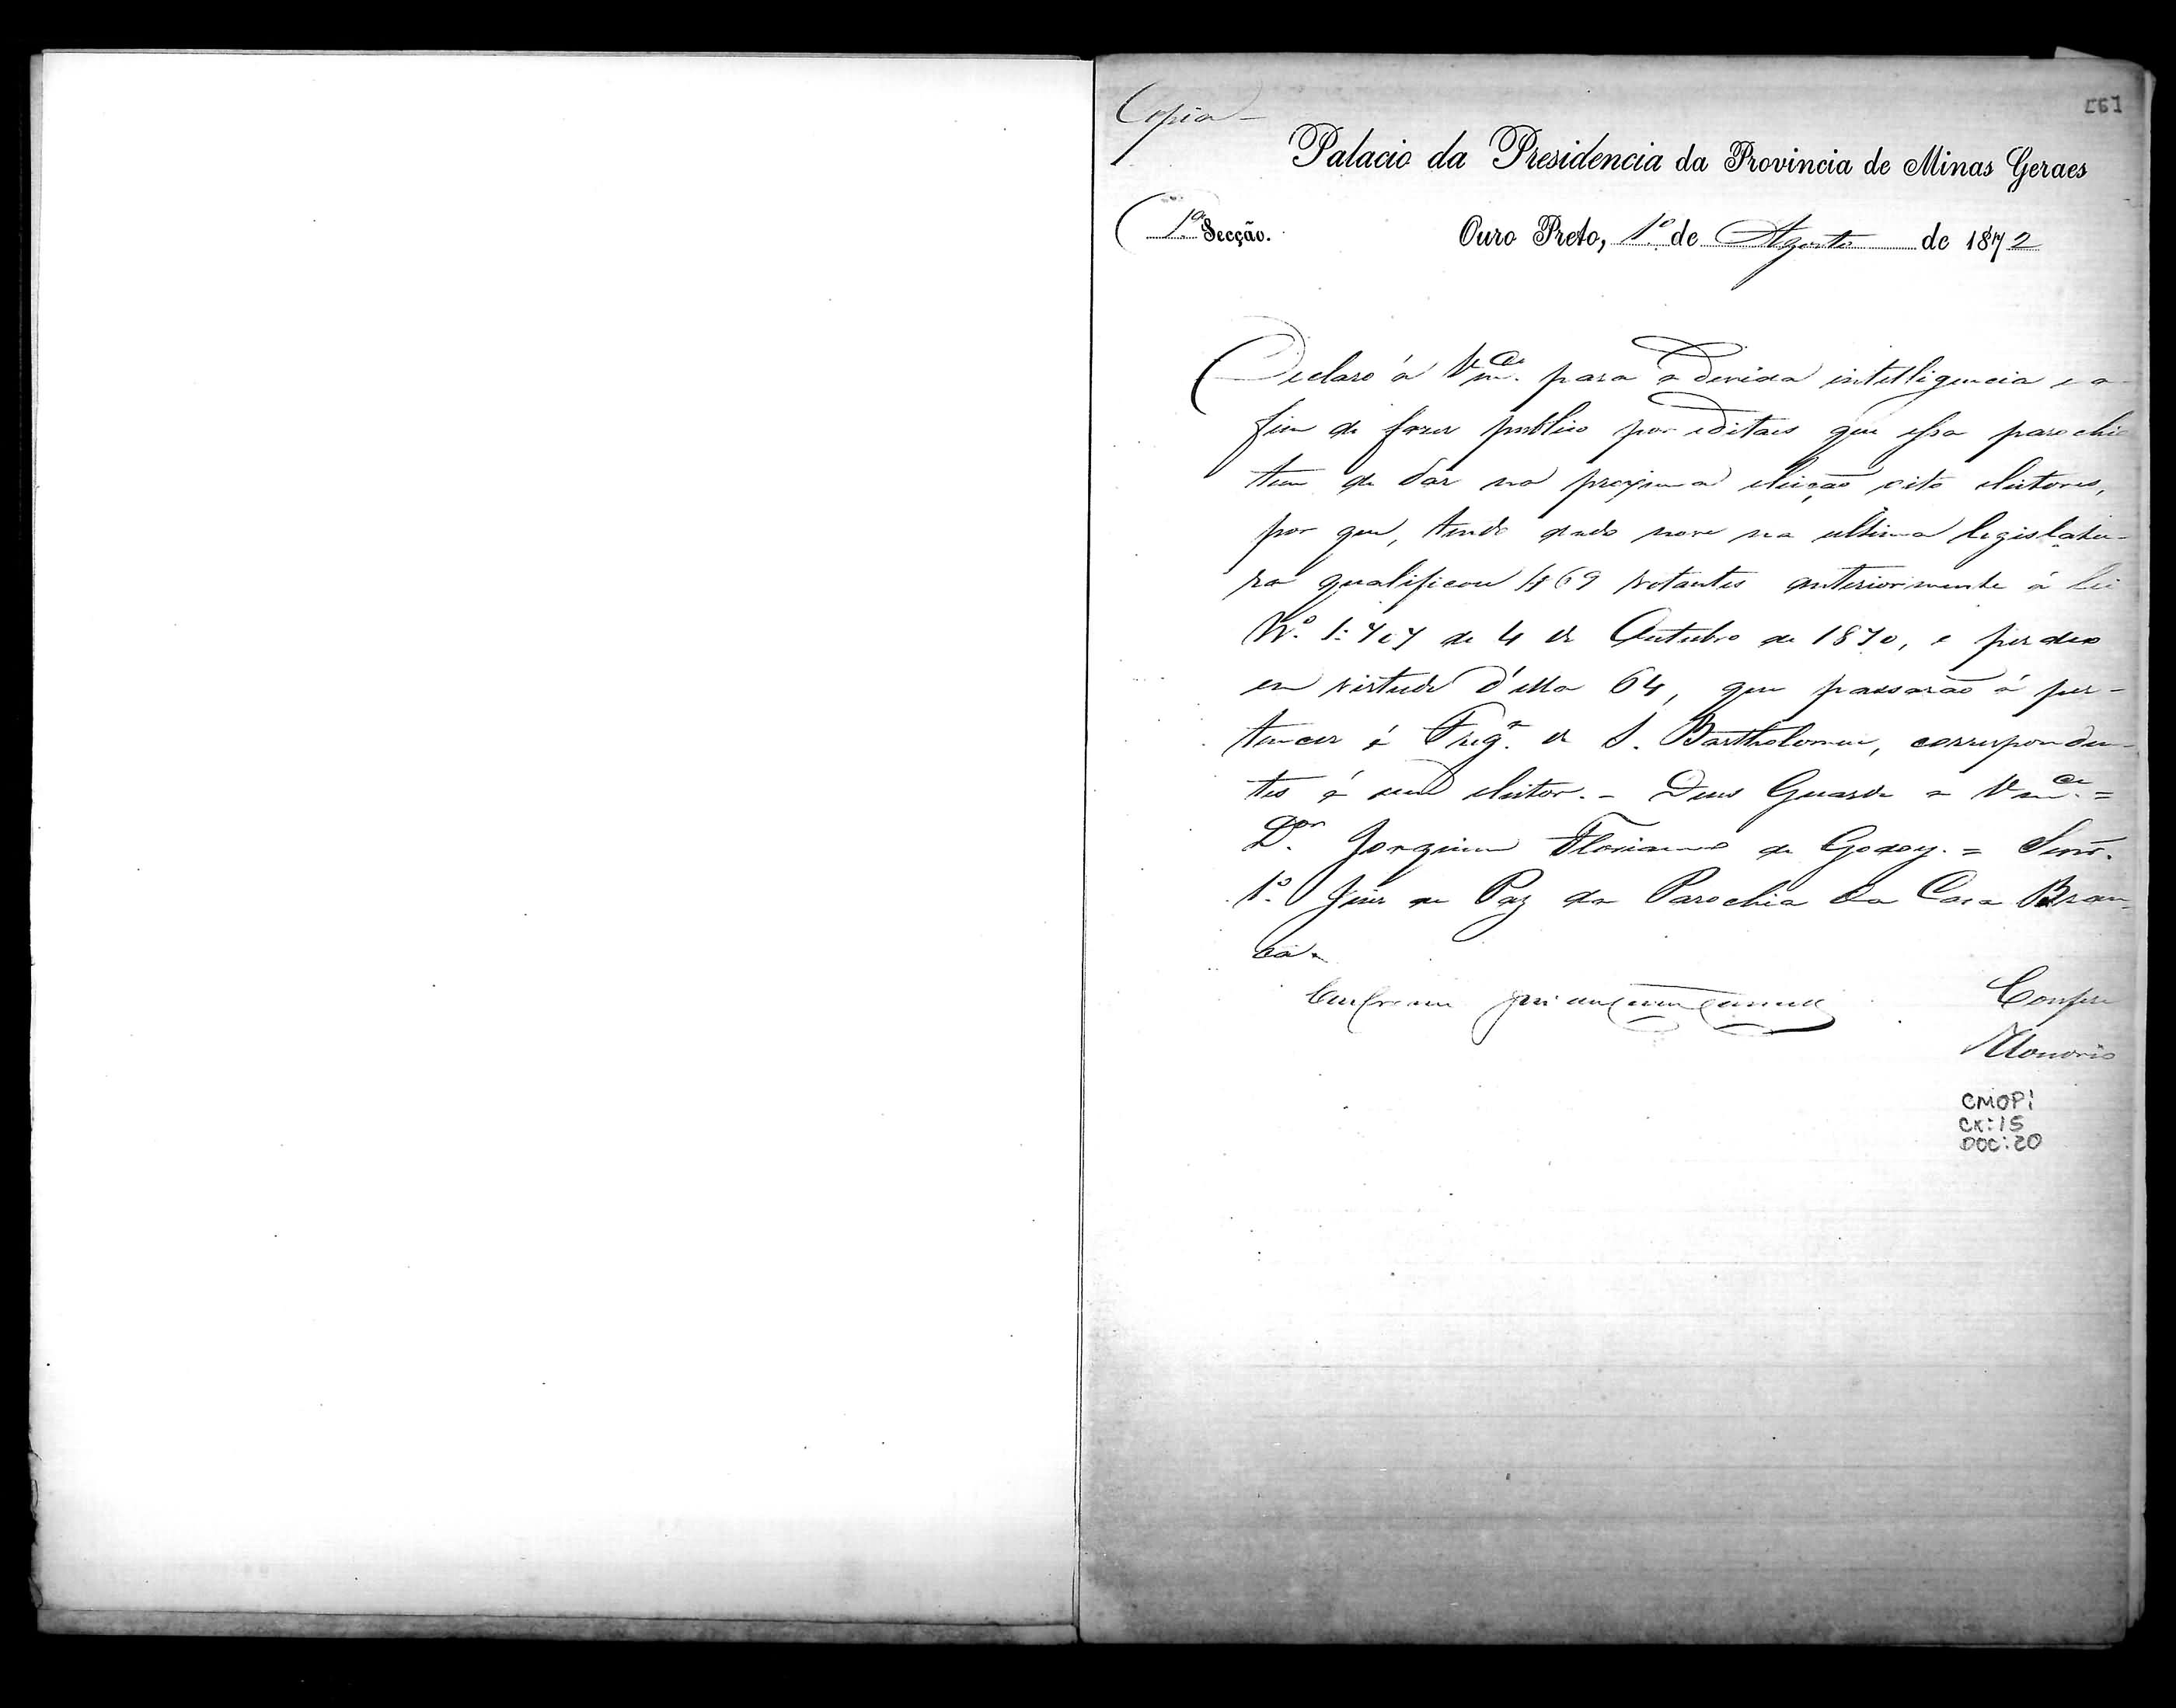 Copia -
Palacio da Presidencia da Provincia de Minas Geraes
1ª Secção. Ouro Preto, 1º de Agosto de 1872
Declaro á Vm.ce para a devida intelligencia e a
fim de fazer publico por editaes que essa parochia
tem de dar na proxima eleição oito eleitores,
por que, tendo dado nove na ultima legislatu-
ra qualificou 469 votantes anteriormente á lei
Nº. 1:707 de 4 de Outubro de 1870, e perdeo
em virtude d'ella 64, que passarão á per-
tencer á Freg.ª de S. Bartholomeu, corresponden-
tes á um eleitor. - Deus Guarde a Vm.ce =
D.or Joaquim Floriano de Godoy. = Senr.
1º. Juiz de Paz da Parochia da Casa Bran-
ca.
Confere
Honorio
CMOPi
CX:15
DOC:20